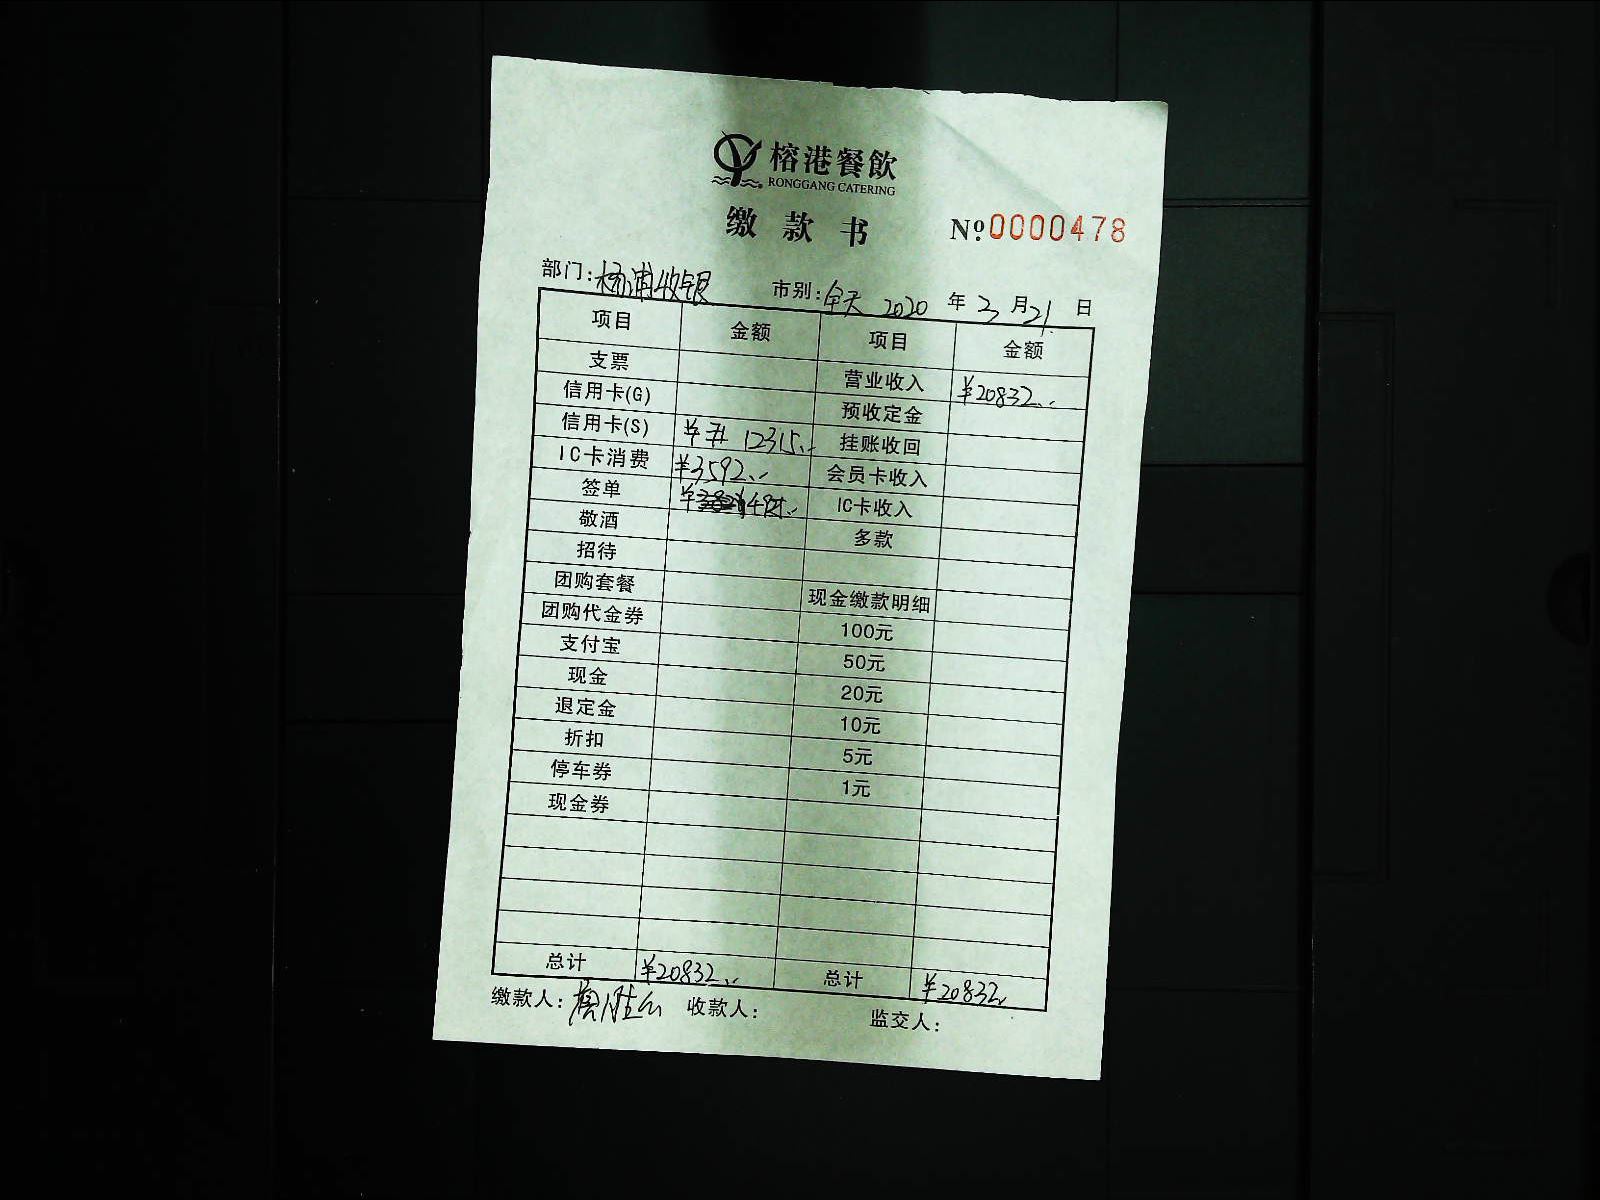 榕港餐飲
RONGGANG CATERING
缴款书 Nº0000478
部门：杨浦收银 市别：全天 2020 年 3 月 21 日
项目 金额 项目 金额
支票 营业收入 ¥20832
信用卡(G) 预收定金
信用卡(S) ¥ 12315 挂账收回
IC卡消费 ¥3592 会员卡收入
签单 ¥ IC卡收入
敬酒 多款
招待
团购套餐 现金缴款明细
团购代金券 100元
支付宝 50元
现金 20元
退定金 10元
折扣 5元
停车券 1元
现金券
总计 ¥20832 总计 ¥20832
缴款人： 收款人： 监交人：